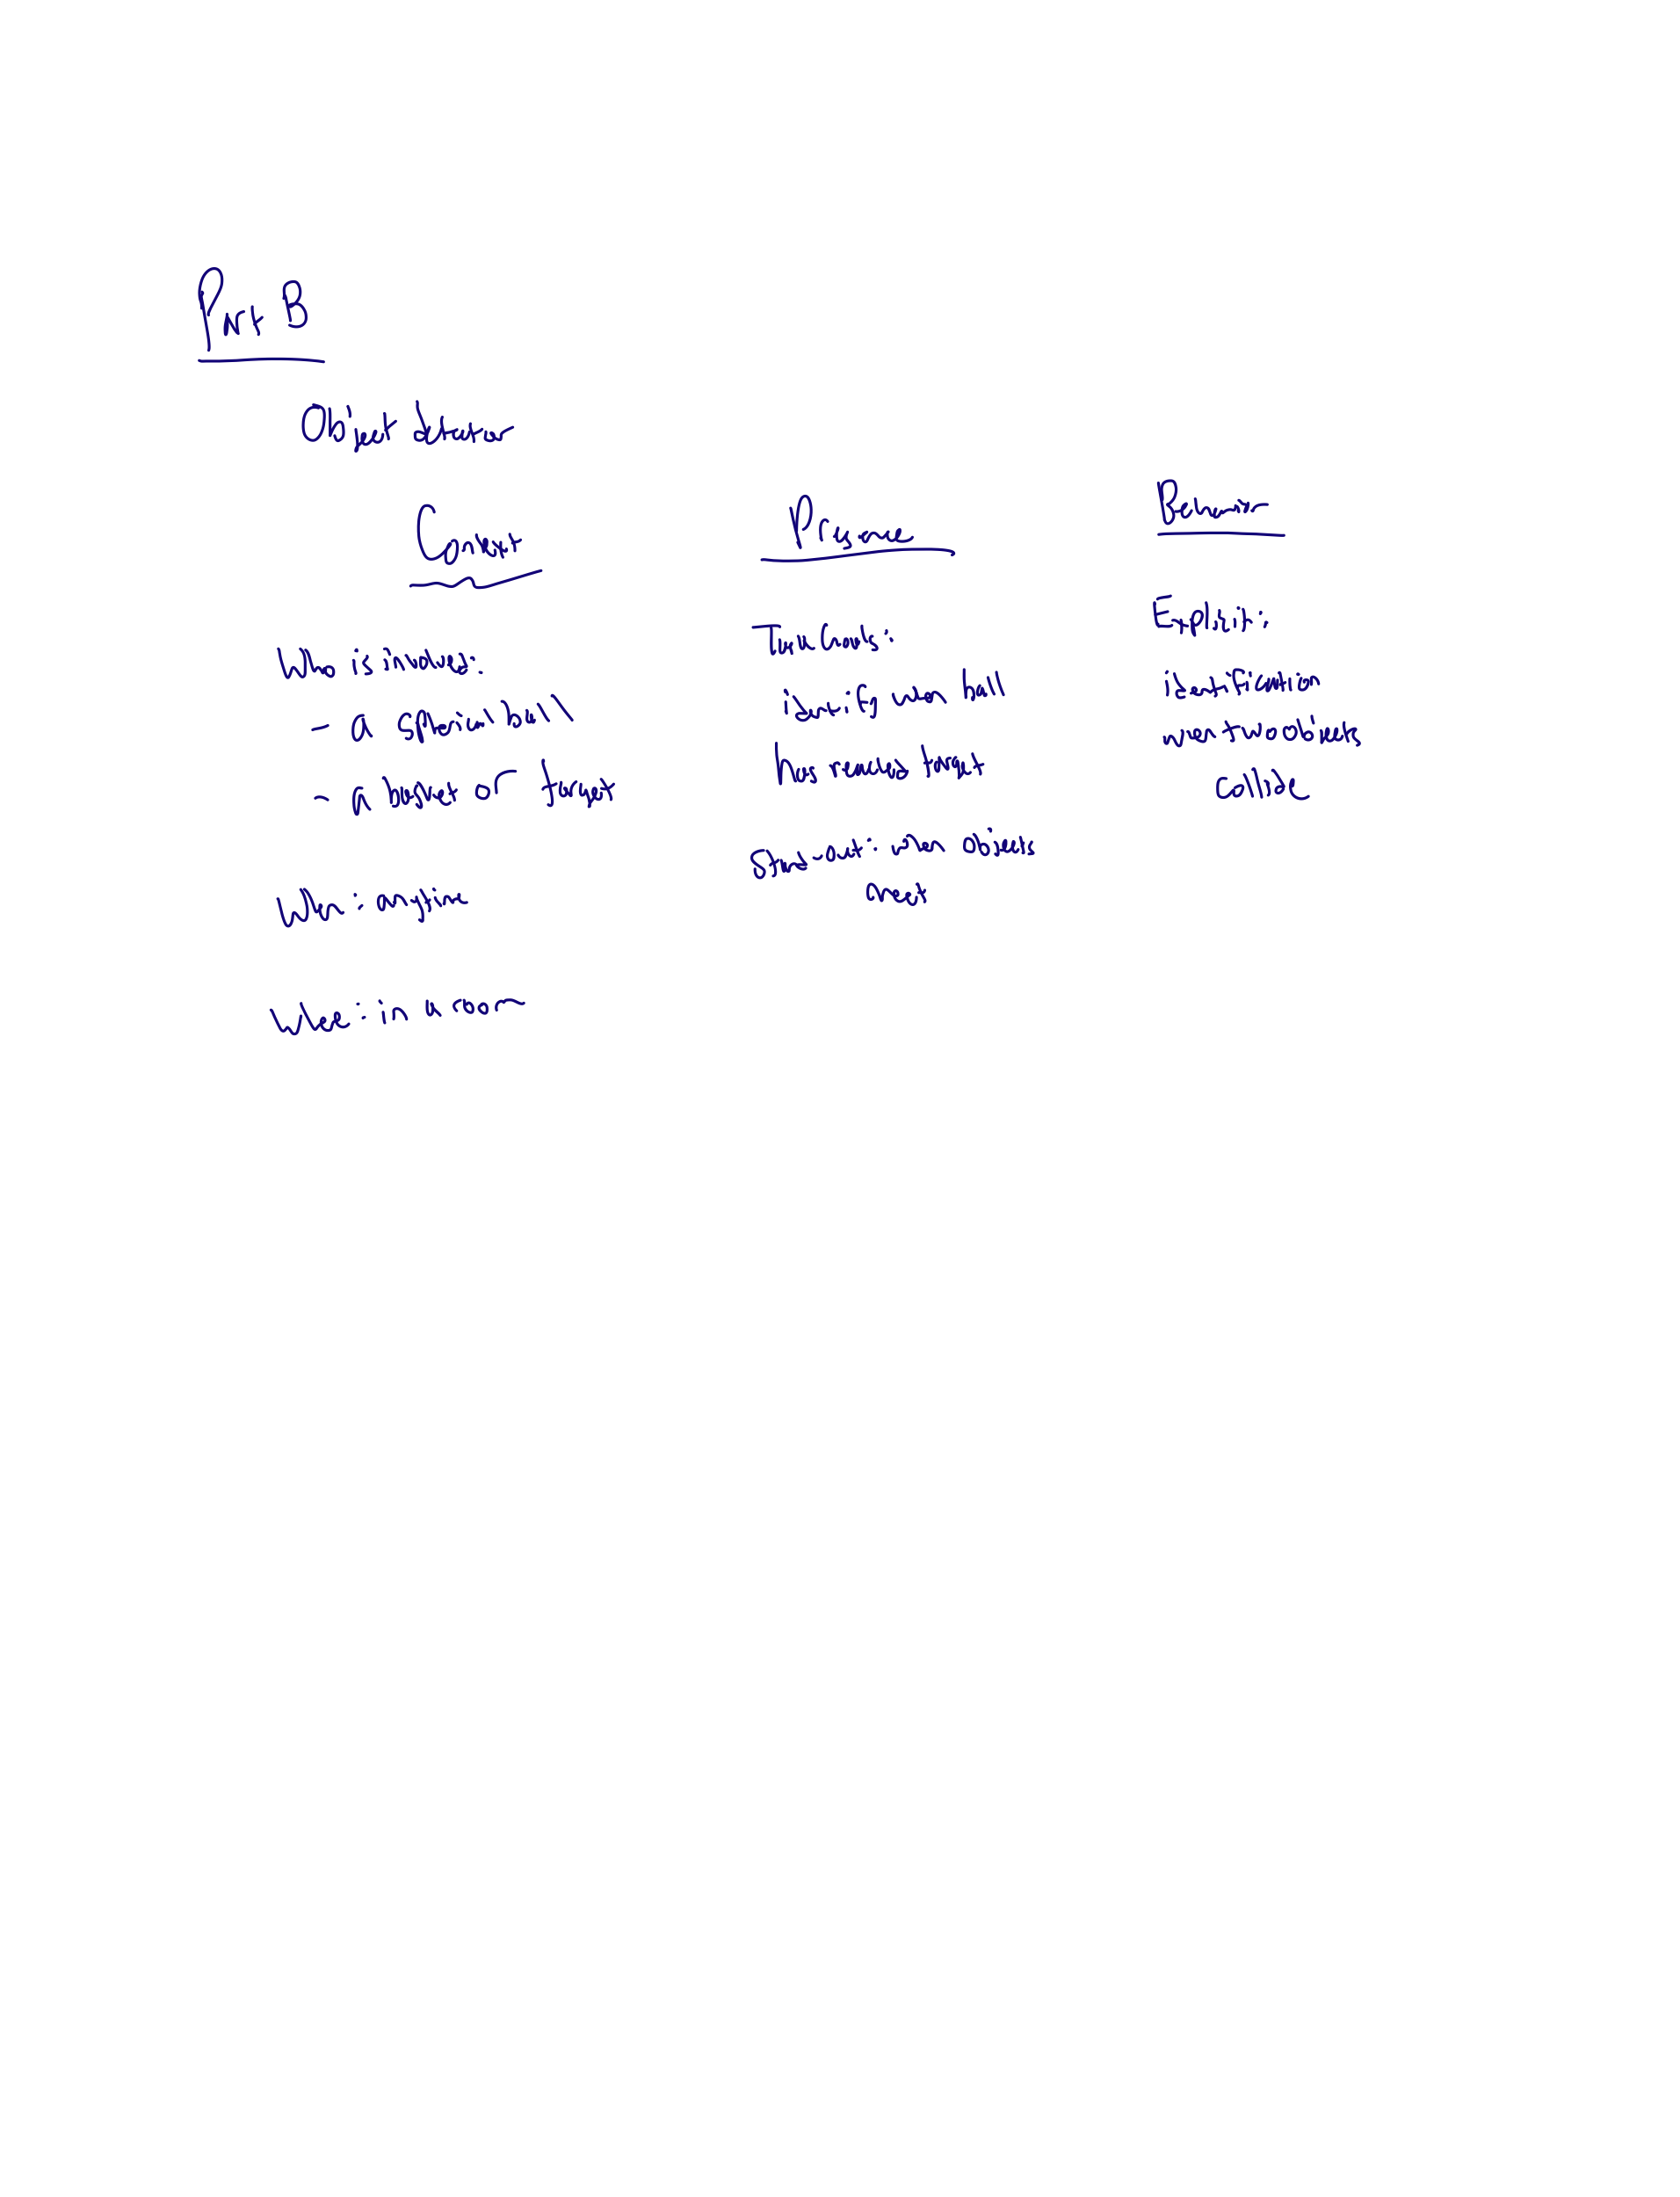 Part B
Object detector
Context
Who is involved:
- a spherical ball
- a basket or target
When: anytime
Where: in a room
Presence
Turn Goals:
identify when ball
has reached target
Stand-out: when objects
meet
Behavior
Explicit:
identification
when two objects
collide